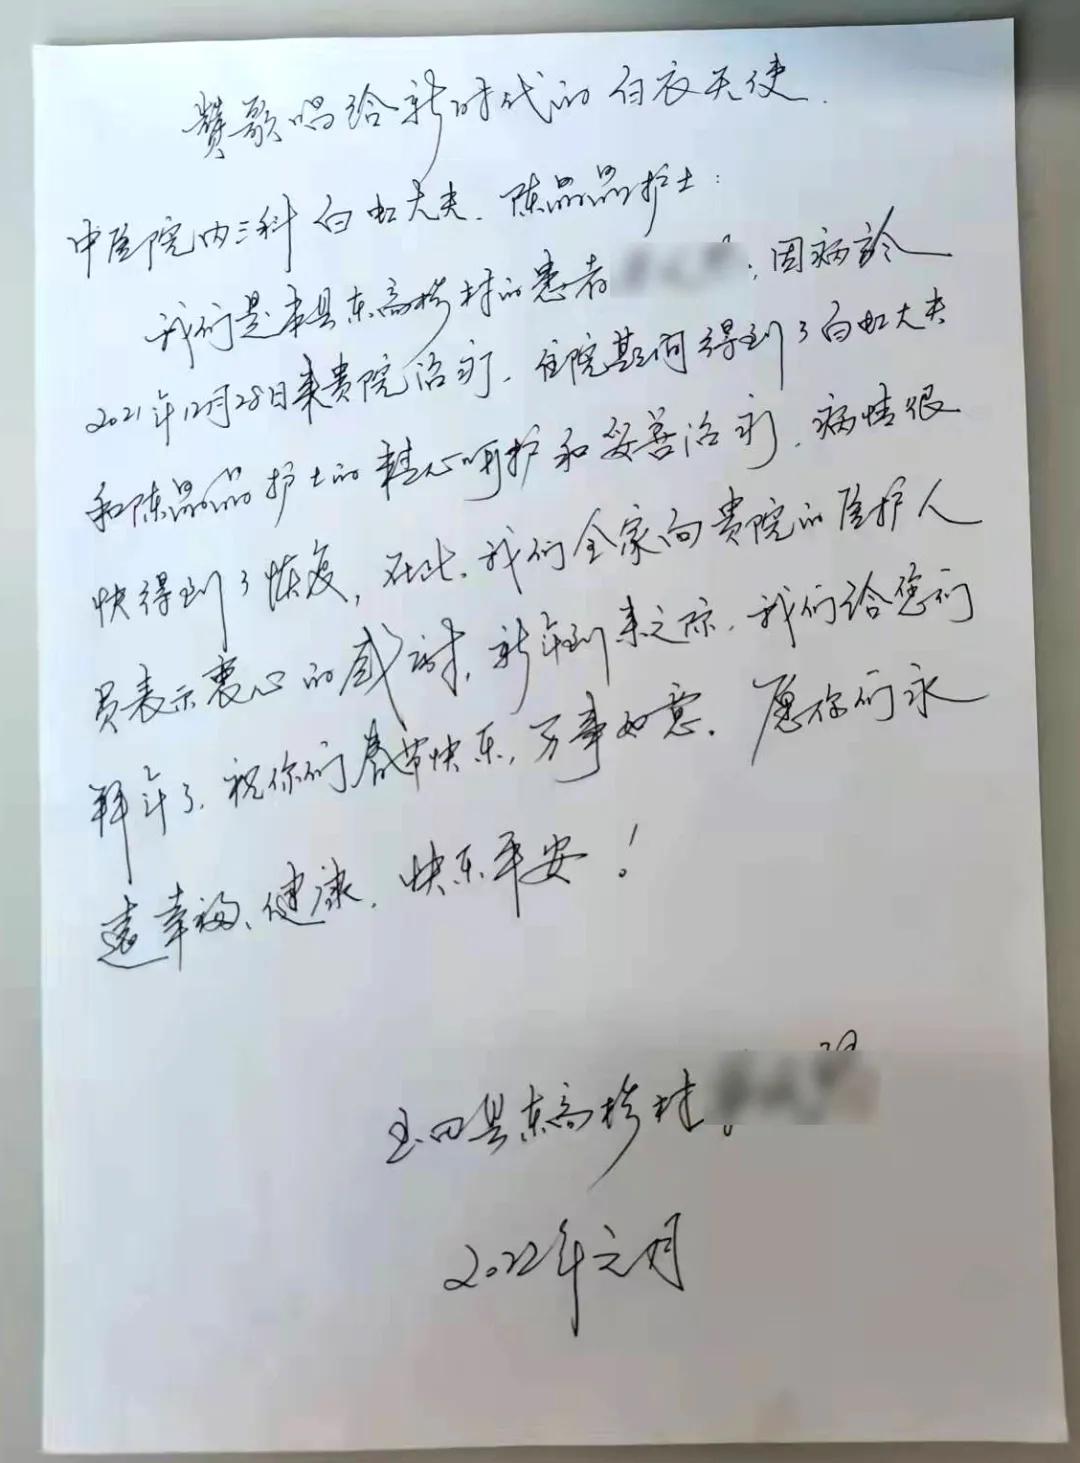 赞歌唱给新时代的白衣天使.
中医院内三科白虹大夫、陈晶晶护士:
我们是本县东高桥村的患者,因病于
2021年12月28日来贵院治疗.住院期间得到了白虹大夫
和陈晶晶护士的精心呵护和妥善治疗.病情很
快得到了恢复,在此.我们全家向贵院的医护人
员表示衷心的感谢,新年到来之际.我们给您们
拜年了.祝你们春节快乐,万事如意.愿你们永
远幸福、健康.快乐平安!
玉田县东高桥村
2022年元月